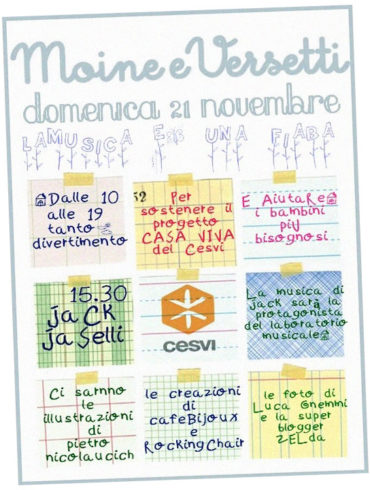 Moine e Versetti
domenica 21 novembre
LA MUSICA E' UNA FIABA
Dalle 10
alle 19
tanto
divertimento
52
Per
sostenere il
progetto
CASA VIVA
del Cesvi
E AiutaRe
i bambini
più
bisognosi
15.30
jaCK
jaSelli
cesvi
La musica di
jaCK sarà la
protagonista
del laboratorio
musicale
Ci sarnno
le
illustrazioni
di
pietro
nicolaucich
le creazioni
di
cafeBijoux
e
RockingChair
le foto di
Luca Gnemmi
e la super
blogger
ZELda